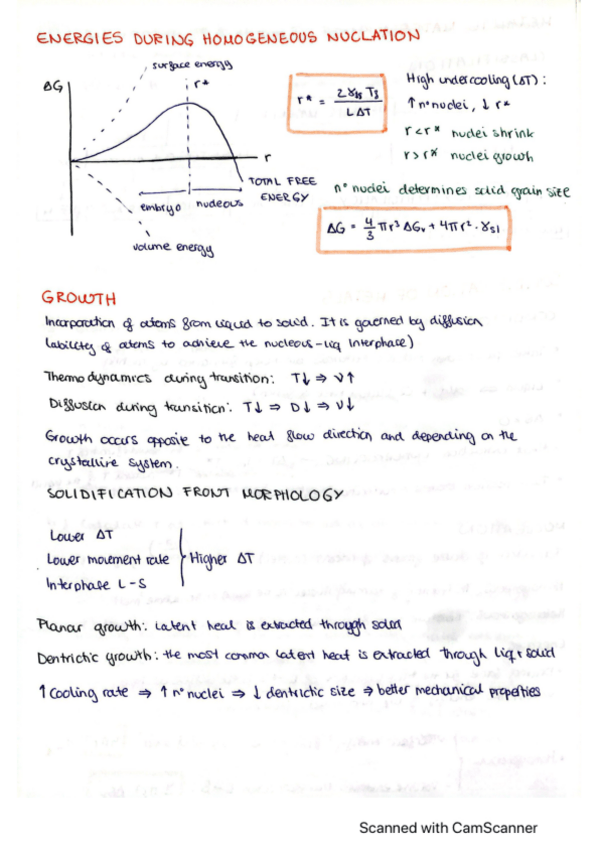 ENERGIES DURING HOMOGENEOUS NUCLATION
surface energy
ΔG
r*
r
TOTAL FREE
ENERGY
embryo
nudeous
volume energy
r* = 2γls Ts / LΔT
High undercooling (ΔT) :
↑ nº nuclei, ↓ r*
r < r* nuclei shrink
r > r* nuclei growth
nº nuclei determines solid grain size
ΔG = 4/3 πr³ ΔGv + 4πr² · γsl
GROWTH
Incorporation of atoms from liquid to solid. It is governed by diffusion
(ability of atoms to achieve the nucleous-liq interphase)
Thermodynamics during transition: T↓ ⇒ ν↑
Diffusion during transition: T↓ ⇒ D↓ ⇒ ν↓
Growth occurs opposite to the heat flow direction and depending on the
crystalline system.
SOLIDIFICATION FRONT MORPHOLOGY
Lower ΔT
Lower movement rate } Higher ΔT
Interphase L-S
Planar growth: Latent heat is extracted through solid
Dentrictic growth: the most common latent heat is extracted through liq + solid
↑ cooling rate ⇒ ↑ nº nuclei ⇒ ↓ dentrictic size ⇒ better mechanical properties
Scanned with CamScanner